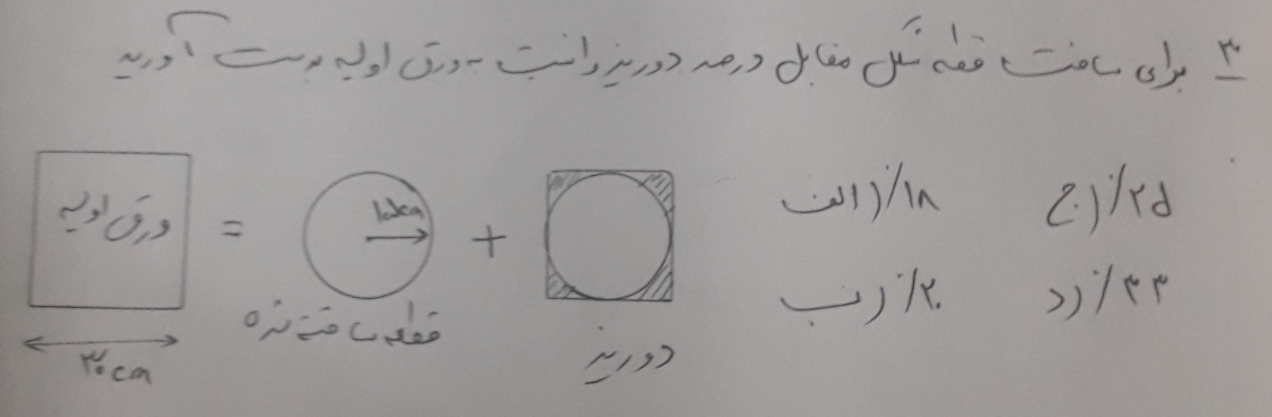 ۳ برای ساخت قطعه شکل مقابل درصد دورریز را نسبت به ورق اولیه بدست آورید
ورق اولیه = 10cm +
الف) ۱۸٪ ج) ۲۵٪
ب) ۲۰٪ د) ۳۳٪
قطعه ساخته شده
دورریز
۲۰cm